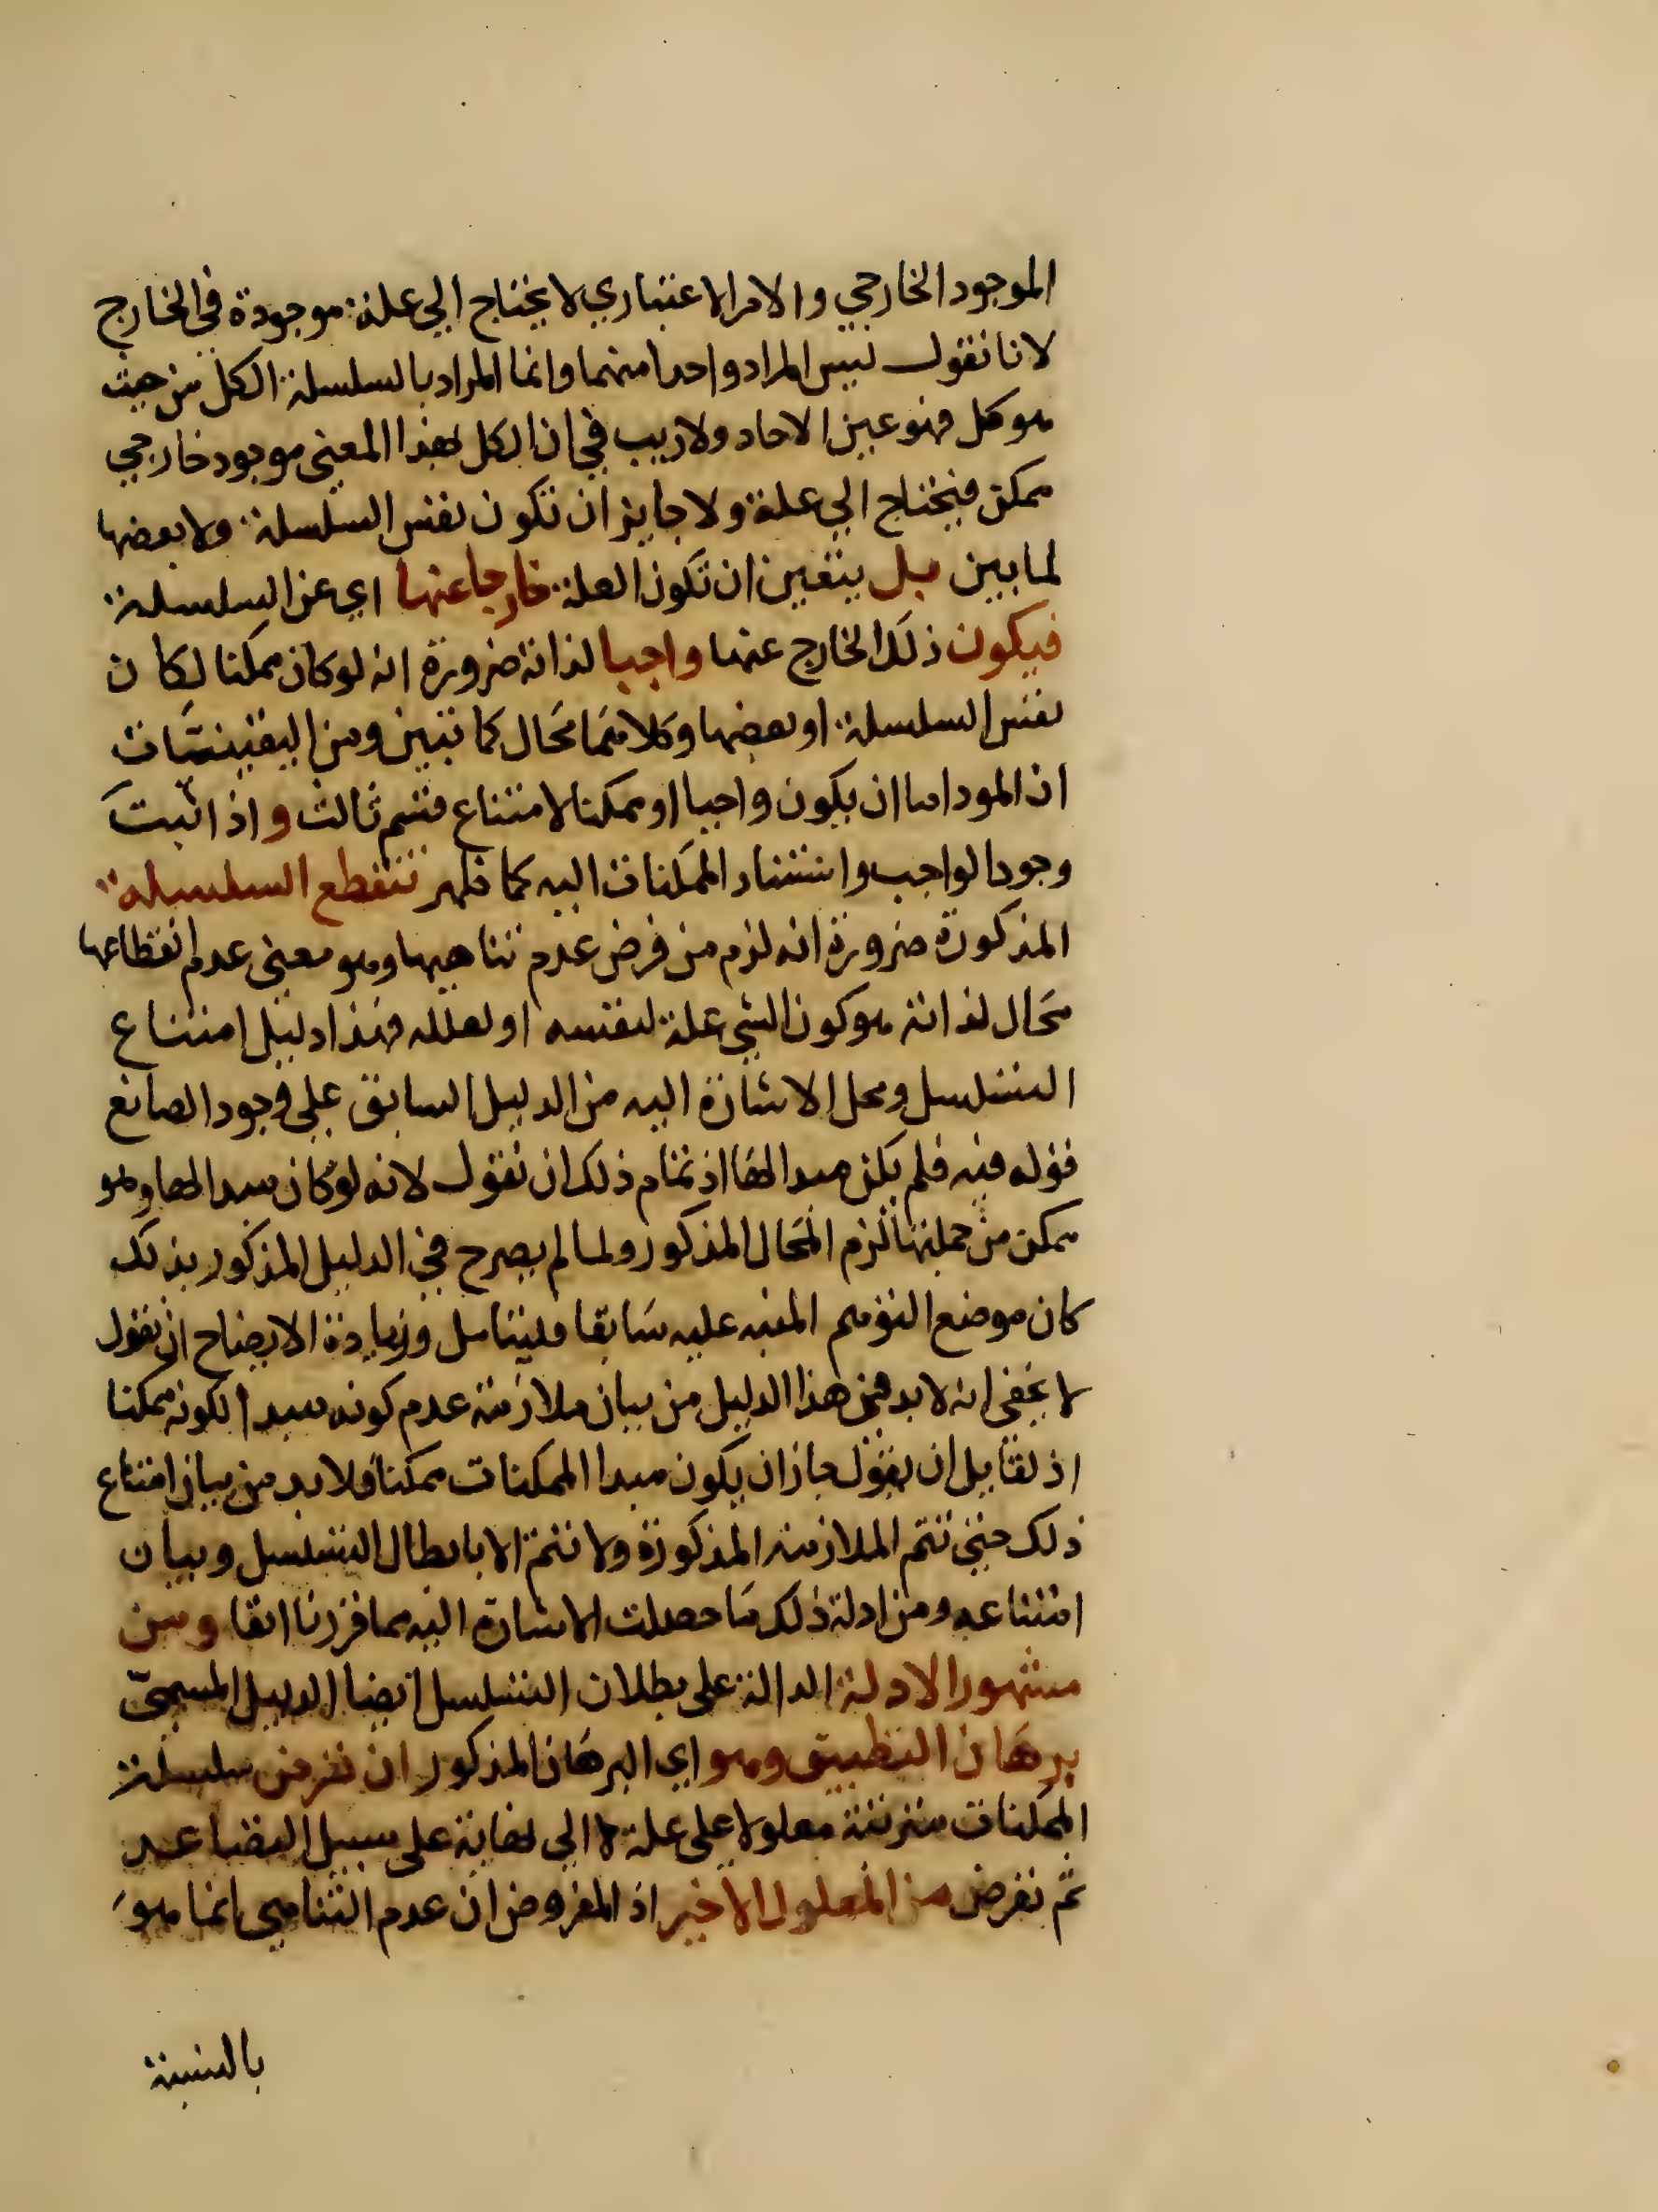 الموجود الخارجي والامر الاعتباري لا يحتاج الي علة موجودة في الخارج
لانا نقول ليس المراد واحدا منهما وانما المراد بالسلسلة الكل من حيث
هو كل فهو عين الاحاد ولا ريب في ان الكل بهذا المعني موجود خارجي
ممكن فيحتاج الي علة ولا جايز ان تكون نفس السلسلة ولا بعضها
لما بين بل يتعين ان تكون العلة خارجا عنها اي عن السلسلة
فيكون ذلك الخارج عنها واجبا لذاته ضرورة انه لو كان ممكنا لكان
نفس السلسلة او بعضها وكلاهما محال كما تبين ومن اليقينيات
ان الموداما ان يكون واجبا او ممكنا لامتناع قسم ثالث واذا ثبت
وجود الواجب واستناد الممكنات اليه كما ظهر تنقطع السلسلة
المذكورة ضرورة انه لزم من فرض عدم تناهيها وهو معني عدم انقطاعها
محال لذاته هو كون الشي علة لنفسه او لعلله فهذا دليل امتناع
التسلسل ومحل الاشارة اليه من الدليل السابق علي وجود الصانع
قوله فيه فلم يكن مبدا لها اذ تمام ذلك ان نقول لانه لو كان مبدا لها وهو
ممكن من جملتها لزم المحال المذكور ولما لم يصرح في الدليل المذكور بذلك
كان موضع التوهم المنبه عليه سابقا فليتامل وزيادة الايضاح ان نقول
لا يخفي انه لا بد في هذا الدليل من بيان ملازمة عدم كونه مبدا لكونه ممكنا
اذ لقايل ان يقول جاز ان يكون مبدا الممكنات ممكنا ولا بد من بيان امتناع
ذلك حتي تتم الملازمة المذكورة ولا تتم الا بابطال التسلسل وبيان
امتناعه ومن ادلة ذلك ما حصلت الاشارة اليه مما قررنا انفا ومن
مشهور الادلة الدالة علي بطلان التسلسل ايضا الدليل المسمي
برهان التطبيق وهو اي البرهان المذكور ان نفرض سلسلة
الممكنات مترتبة معلولا علي علة لا الي نهاية علي سبيل التصاعد
ثم نفرض من المعلول الاخير اذ المفروض ان عدم التناهي انما هو
بالنسبة